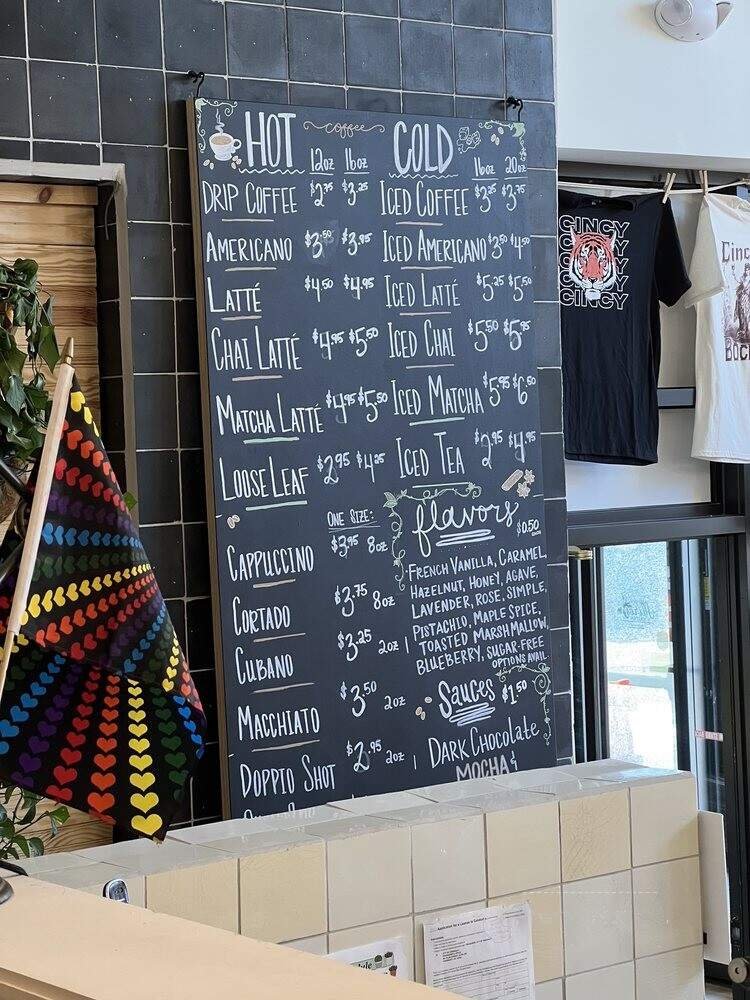 HOT coffee COLD
12oz 16oz 16oz 20oz
DRIP COFFEE $2.75 $3.25 ICED COFFEE $3.25 $3.75
AMERICANO $3.50 $3.95 ICED AMERICANO $3.50 $4.50
LATTÉ $4.50 $4.95 ICED LATTÉ $5.25 $5.50
CHAI LATTÉ $4.95 $5.50 ICED CHAI $5.50 $5.95
MATCHA LATTÉ $4.95 $5.50 ICED MATCHA $5.95 $6.50
LOOSE LEAF $2.95 $4.25 ICED TEA $2.95 $4.95
ONE SIZE:
CAPPUCCINO $3.95 8oz
CORTADO $3.75 8oz
CUBANO $3.25 2oz
MACCHIATO $3.50 2oz
DOPPIO SHOT $2.95 2oz
flavors $0.50
FRENCH VANILLA, CARAMEL,
HAZELNUT, HONEY, AGAVE,
LAVENDER, ROSE, SIMPLE,
PISTACHIO, MAPLE SPICE,
TOASTED MARSHMALLOW,
BLUEBERRY, SUGAR-FREE
OPTIONS AVAIL.
Sauces $1.50
DARK CHOCOLATE
MOCHA &
CINCY
CINCY
Cinc